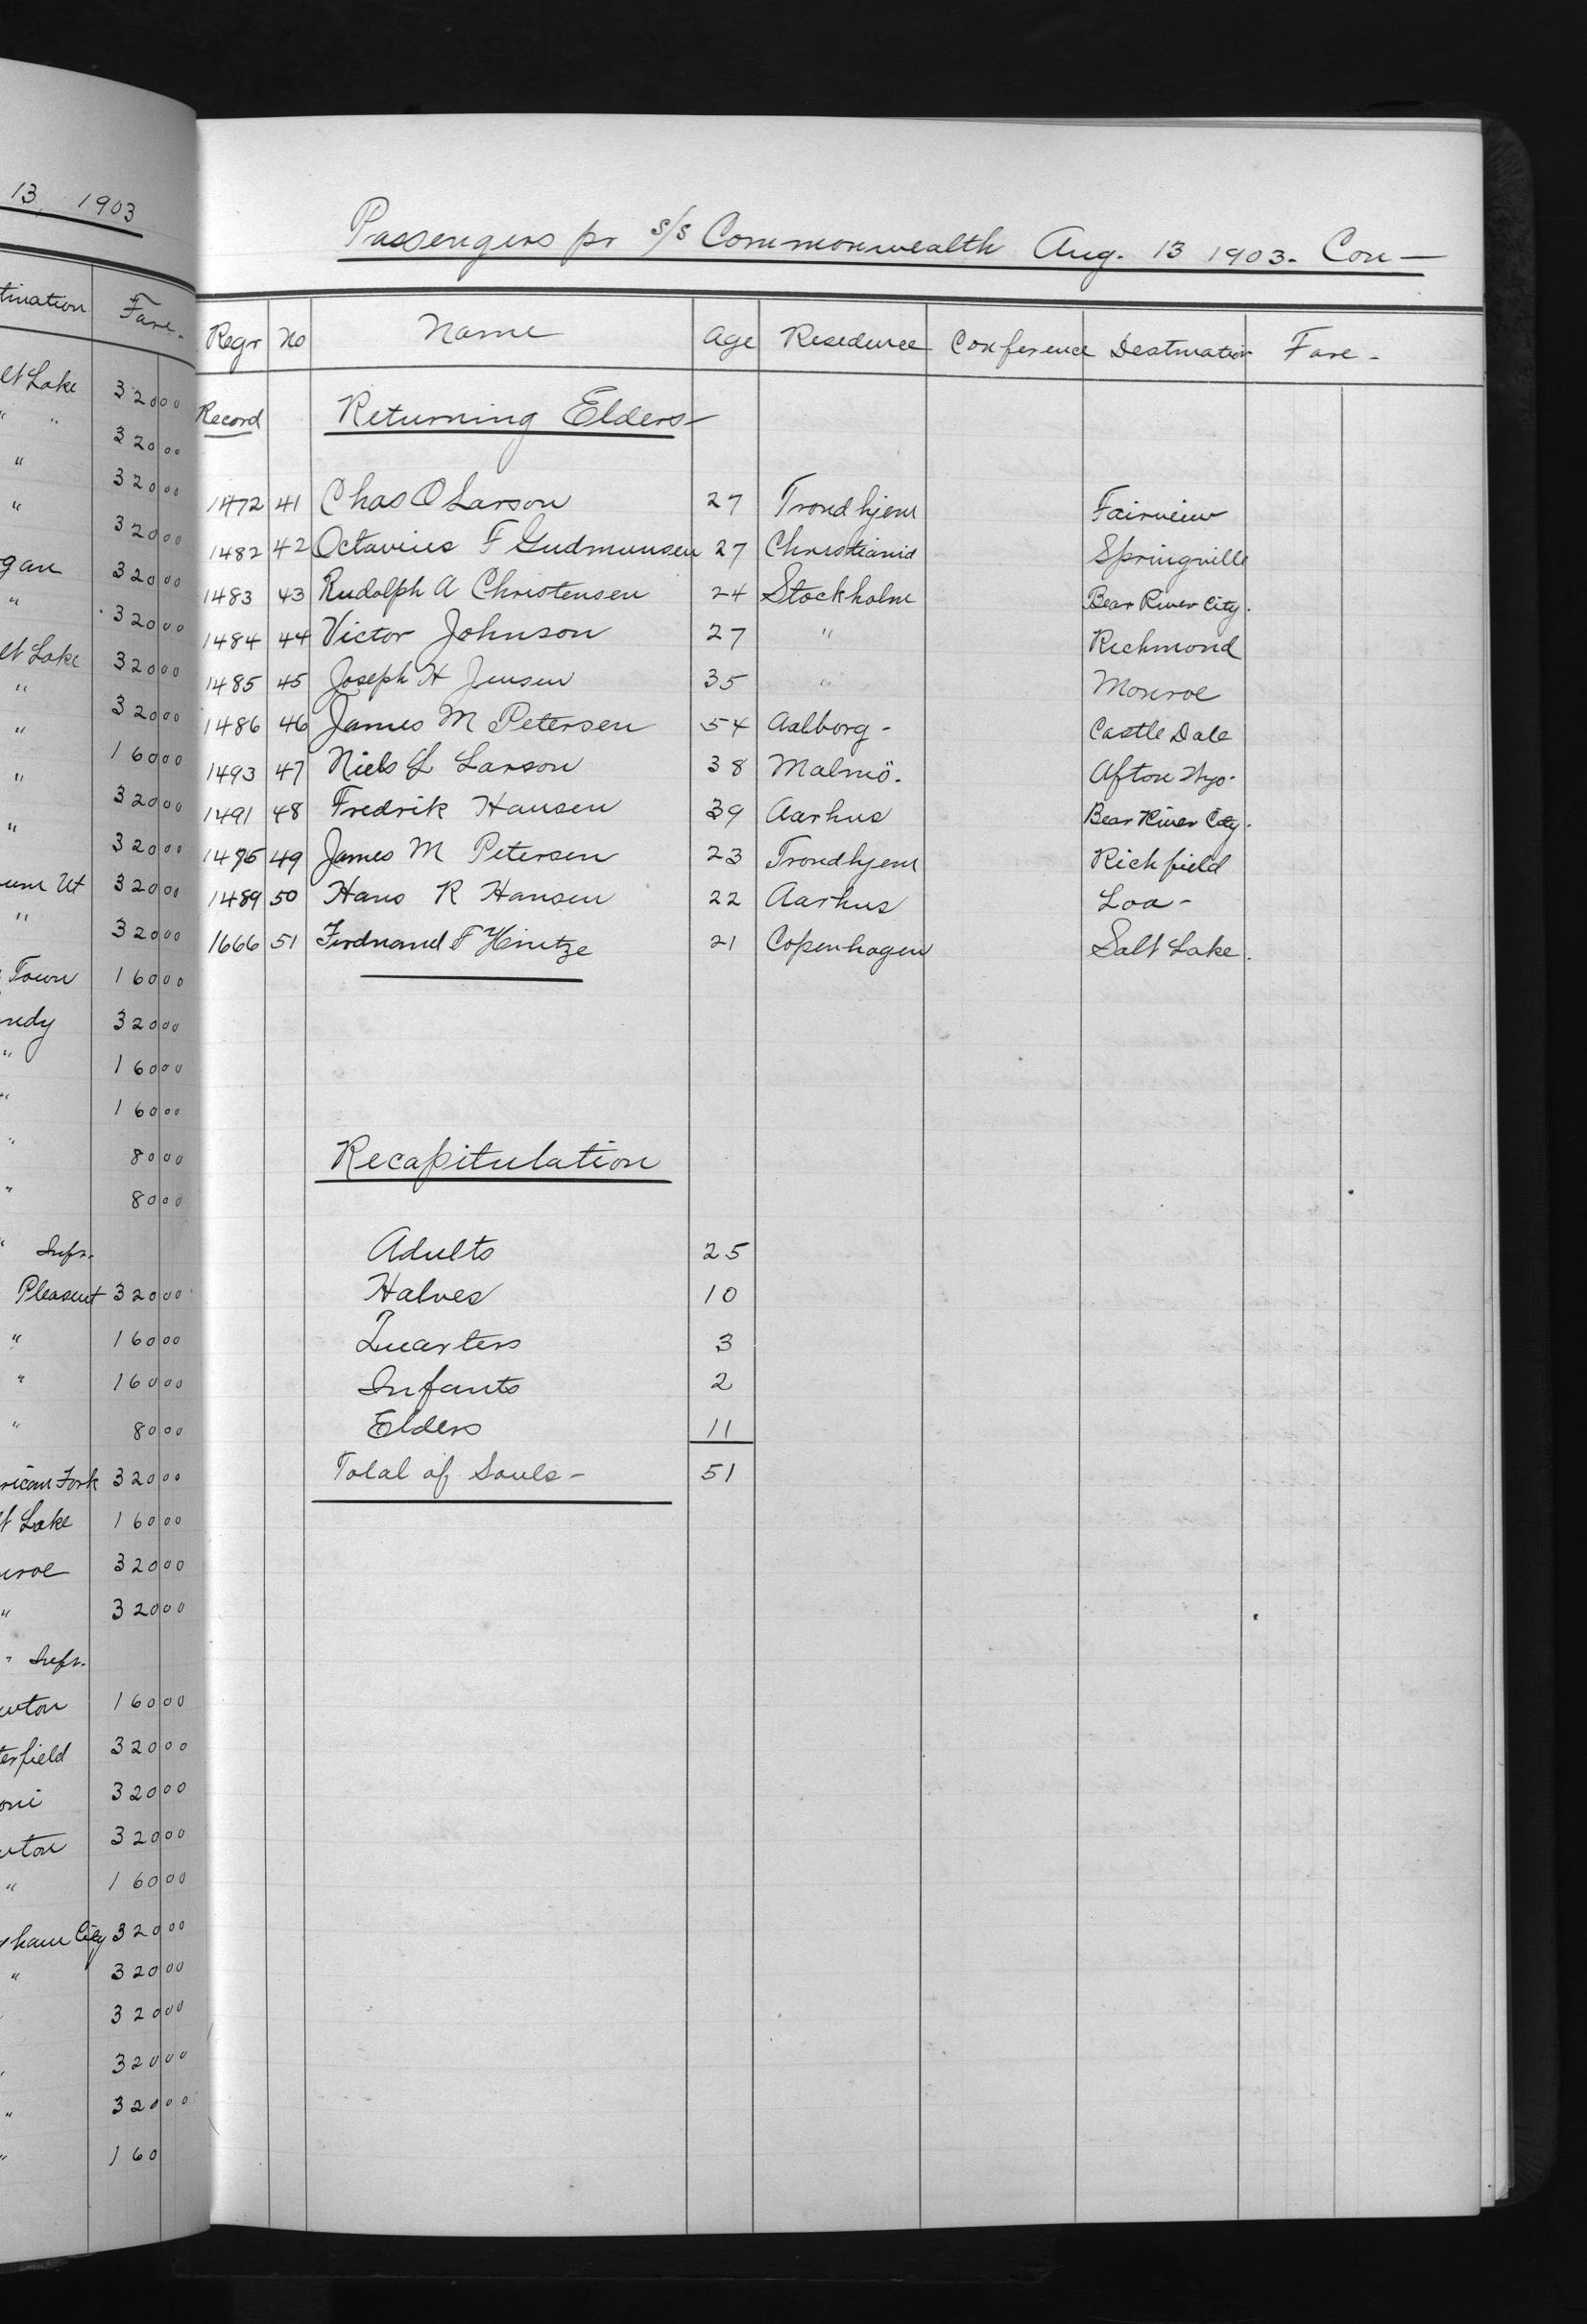 13, 1903
tination Fare.
lt Lake 320 00
" " 320 00
" 320 00
" 320 00
gan 320 00
" 320 00
lt Lake 320 00
" 320 00
" 160 00
" 320 00
" 320 00
Ut 320 00
" 320 00
Town 160 00
ndy 320 00
" 160 00
" 160 00
" 80 00
" 80 00
" Inft.
Pleasent 320 00
" 160 00
" 160 00
" 80 00
rican Fork 320 00
t Lake 160 00
nroe 320 00
" 320 00
" Inft.
wton 160 00
terfield 320 00
oni 320 00
wton 320 00
" 160 00
gham City 320 00
" 320 00
320 00
320 00
" 320 00
" 160
Passengers pr s/s Commonwealth Aug. 13 1903. Con—
Regr No Name Age Resedence Conference Destination Fare -
Record Returning Elders
1472 41 Chas O Larson 27 Trondhjem Fairview
1482 42 Octavius F Gudmunsen 27 Christiania Springville
1483 43 Rudolph A Christensen 24 Stockholm Bear River City.
1484 44 Victor Johnson 27 " Richmond
1485 45 Joseph H Jensen 35 " Monroe
1486 46 James M Petersen 54 Aalborg - Castle Dale
1493 47 Niels L Larson 38 Malmö. Afton Wyo.
1491 48 Fredrik Hansen 39 Aarhus Bear River City.
1495 49 James M Petersen 23 Trondhjem Richfield
1489 50 Hans R Hansen 22 Aarhus Loa -
1666 51 Ferdnand F Hintze 21 Copenhagen Salt Lake.
Recapitulation
Adults 25
Halves 10
Quarters 3
Infants 2
Elders 11
Total of Souls - 51